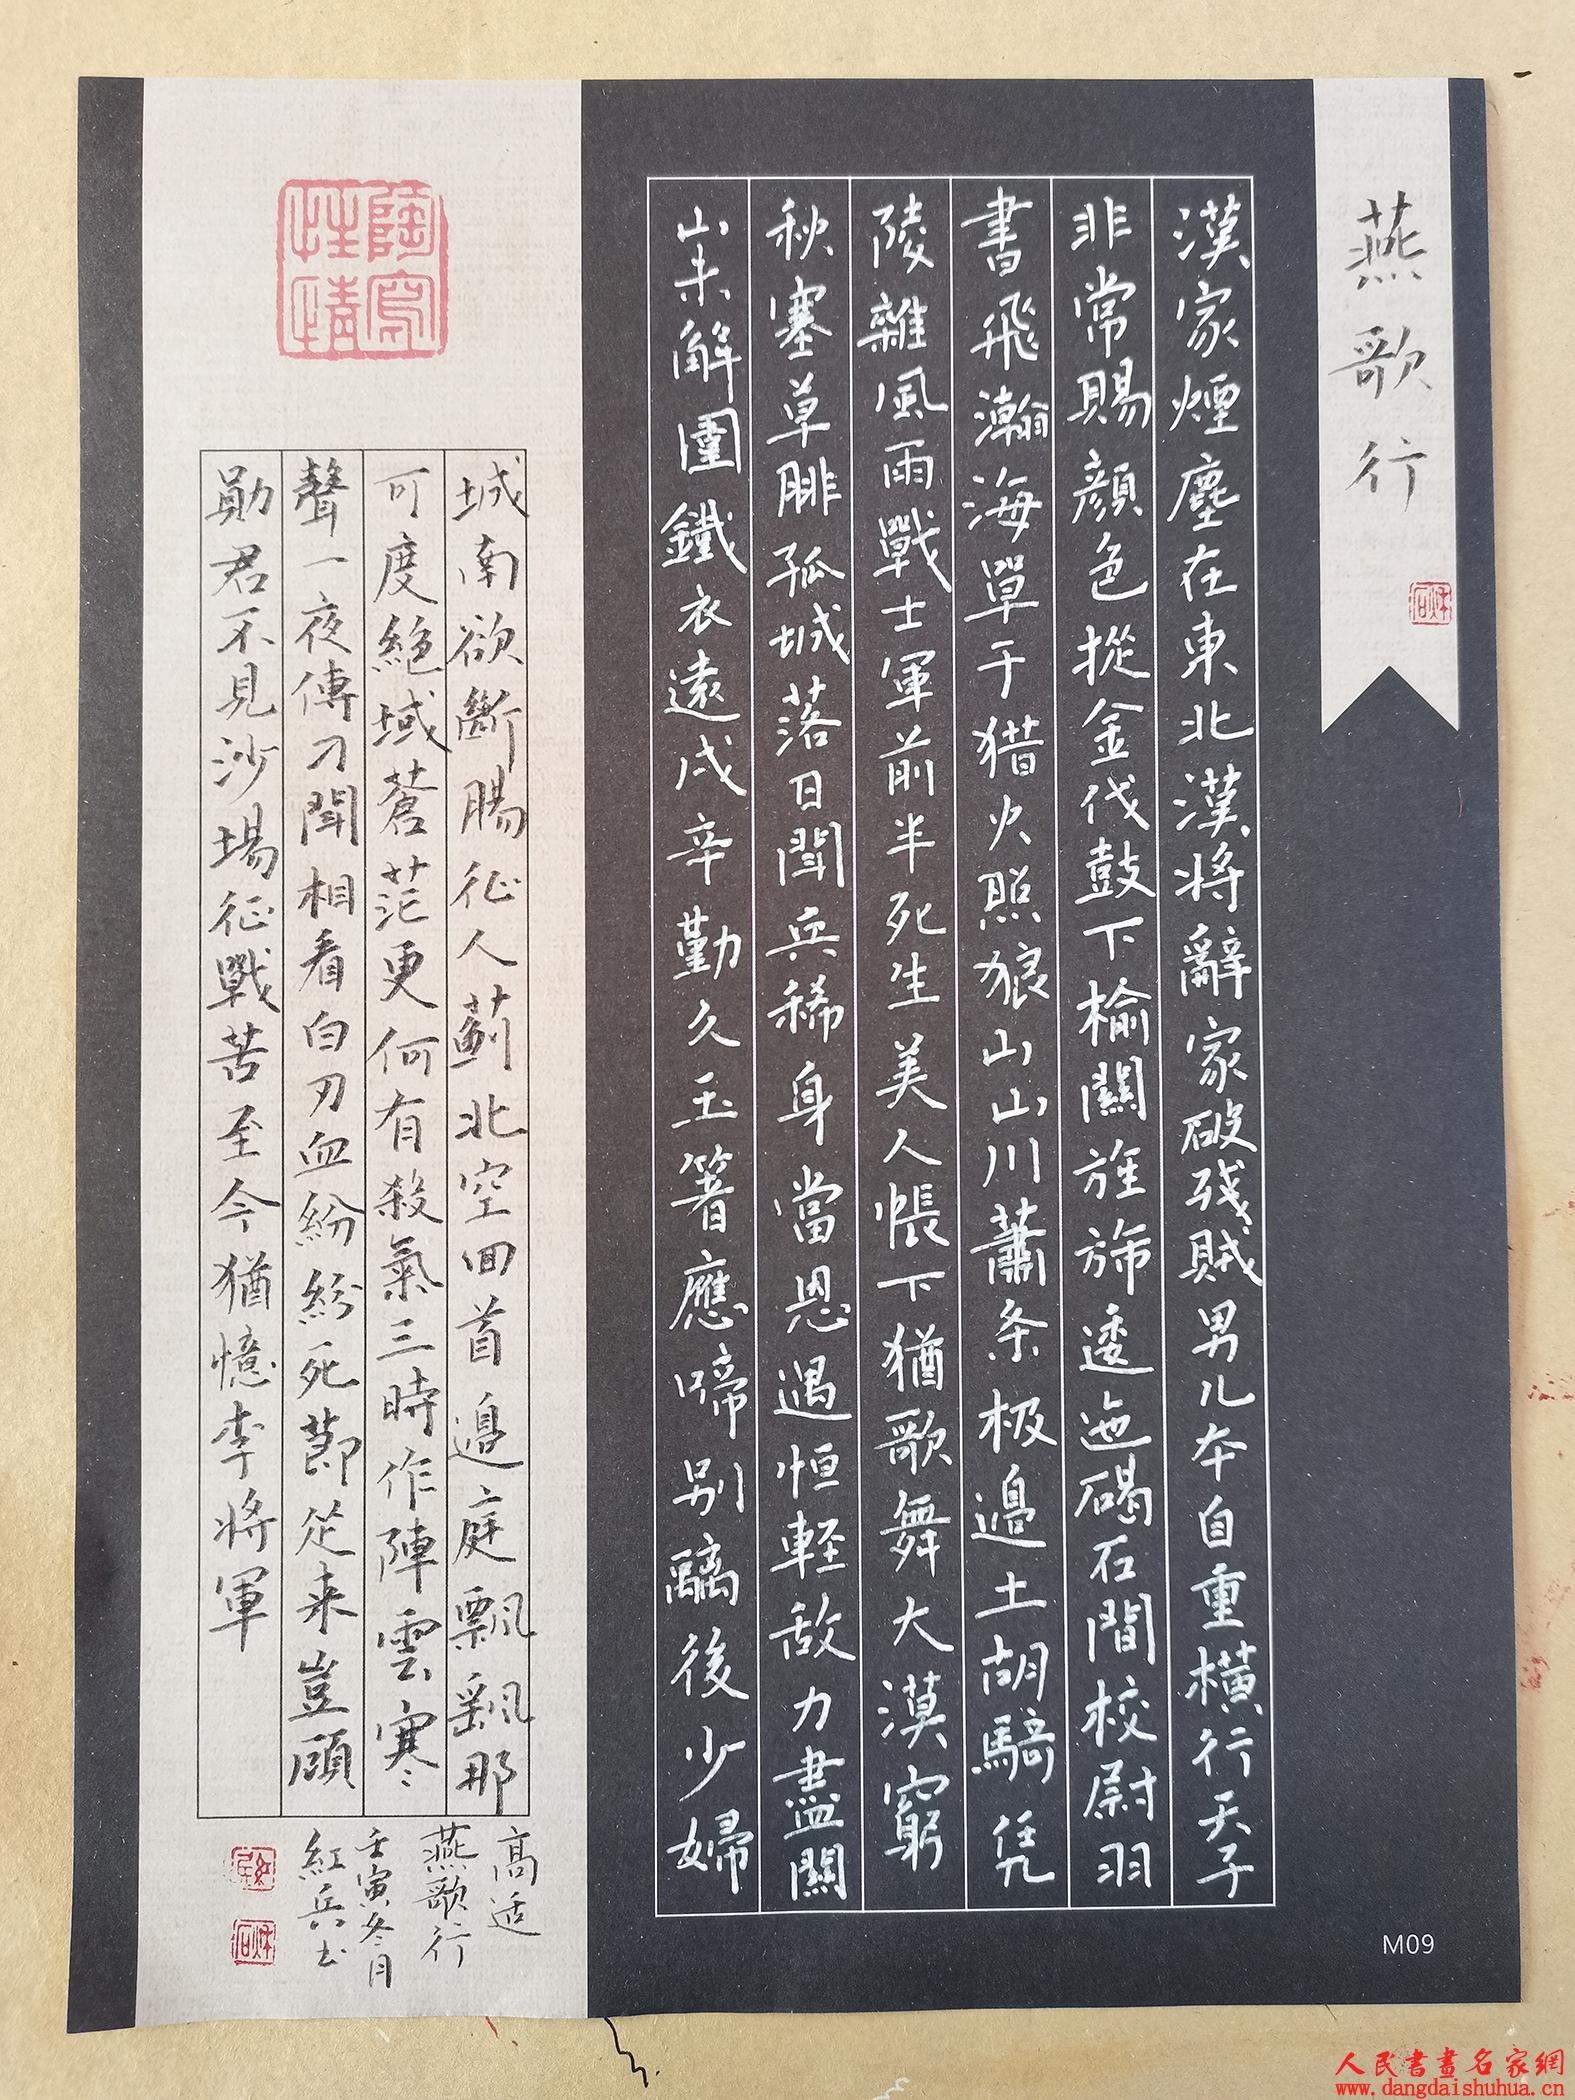 燕歌行
漢家煙塵在東北漢將辭家破残賊男儿本自重橫行天子
非常賜顔色摐金伐鼓下榆關旌旆逶迤碣石間校尉羽
書飛瀚海單于猎火照狼山山川蕭条极邊土胡騎凭
陵雜風雨戰士軍前半死生美人帳下猶歌舞大漠窮
秋塞草腓孤城落日聞兵稀身當恩遇恒軽敌力盡關
山未解圍鐵衣遠戍辛勤久玉箸應啼别離後少婦
城南欲斷腸征人薊北空回首邊庭飄飖那
可度絶域蒼茫更何有殺氣三時作陣雲寒
聲一夜傳刁聞相看白刃血紛紛死節從来豈顧
勛君不見沙場征戰苦至今猶憶李將軍
高适
燕歌行
壬寅冬月
紅兵书
陶寫
性情
M09
人民書畫名家網
www.dangdaishuhua.cn